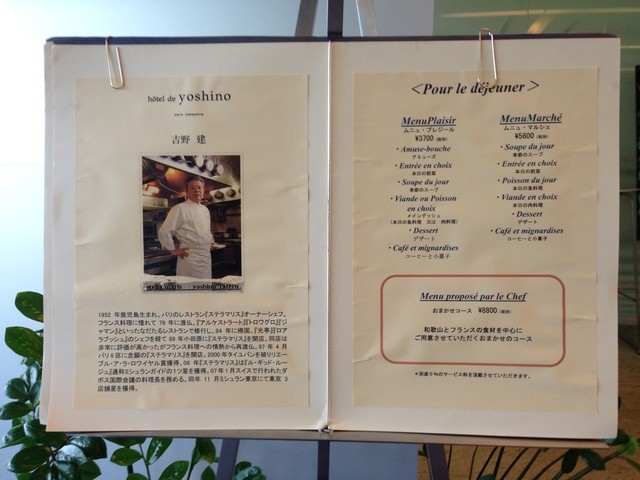 hôtel de yoshino
吉野 建
stella maris yoshino tateru
1952 年鹿児島生まれ。パリのレストラン『ステラマリス』オーナーシェフ。
フランス料理に憧れて 79 年に渡仏。『アルケストラート』『トロワグロ』『ジ
ャマン』といったなだたるレストランで修行し、84 年に帰国。『光亭』『ロア
ラブッシュ』のシェフを経て 89 年小田原に『ステラマリス』を開店。同店は
非常に評価が高かったがフランス料理への情熱から再渡仏。97 年 4 月
パリ 8 区に念願の『ステラマリス』を開店。2000 年タイユバンを破りリエー
ブル・ア・ラ・ロワイヤル賞獲得、06 年『ステラマリス』は『ル・ギッド・ルー
ジュ』通称ミシュランガイドの1つ星を獲得。07 年1月スイスで行われたダ
ボス国際会議の料理長を務める。同年 11 月ミシュラン東京にて東京 3
店舗星を獲得。
<Pour le déjeuner >
MenuPlaisir
ムニュ・プレジール
¥3700
・Amuse-bouche
アミューズ
・Entrée en choix
本日の前菜
・Soupe du jour
季節のスープ
・Viande ou Poisson
en choix
メインディッシュ
(本日の魚料理 又は 肉料理)
・Dessert
デザート
・Café et mignardises
コーヒーと小菓子
MenuMarché
ムニュ・マルシェ
¥5600
・Soupe du jour
季節のスープ
・Entrée en choix
本日の前菜
・Poisson du jour
本日の魚料理
・Viande en choix
本日の肉料理
・Dessert
デザート
・Café et mignardises
コーヒーと小菓子
Menu proposé par le Chef
おまかせコース ¥8800
和歌山とフランスの食材を中心に
ご用意させていただくおまかせのコース
＊別途５％のサービス料を頂戴させていただきます。